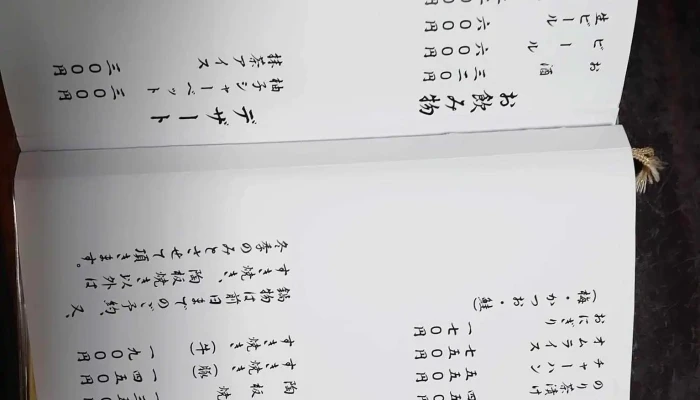 のり茶漬け 四五〇円
チャーハン 五五〇円
オムライス 七五〇円
おにぎり 一七〇円
(梅・かつお・鮭)
陶板焼
すき焼き(豚) 一四五〇円
すき焼き(牛) 一九〇〇円
鍋物は前日までのご予約、又、
すき焼き、陶板焼き以外は
冬季のみとさせて頂きます。
お飲み物
お酒 三二〇円
ビール 六〇〇円
生ビール 六〇〇円
デザート
柚子シャーベット 三〇〇円
抹茶アイス 三〇〇円